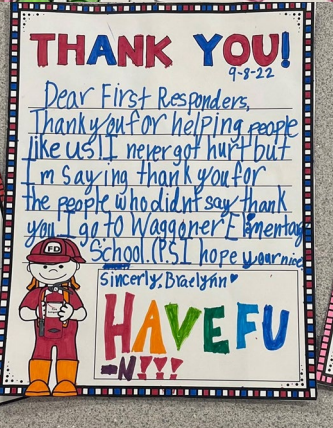 THANK YOU!
9-8-22
Dear First Responders,
Thank you for helping people
like us! I never got hurt but
I'm saying thank you for
the people who didnt say thank
you. I go to Waggoner Elementary
School. (P.S I hope your nice
FD
Sincerly, Braelynn
HAVE FU
-N!!!